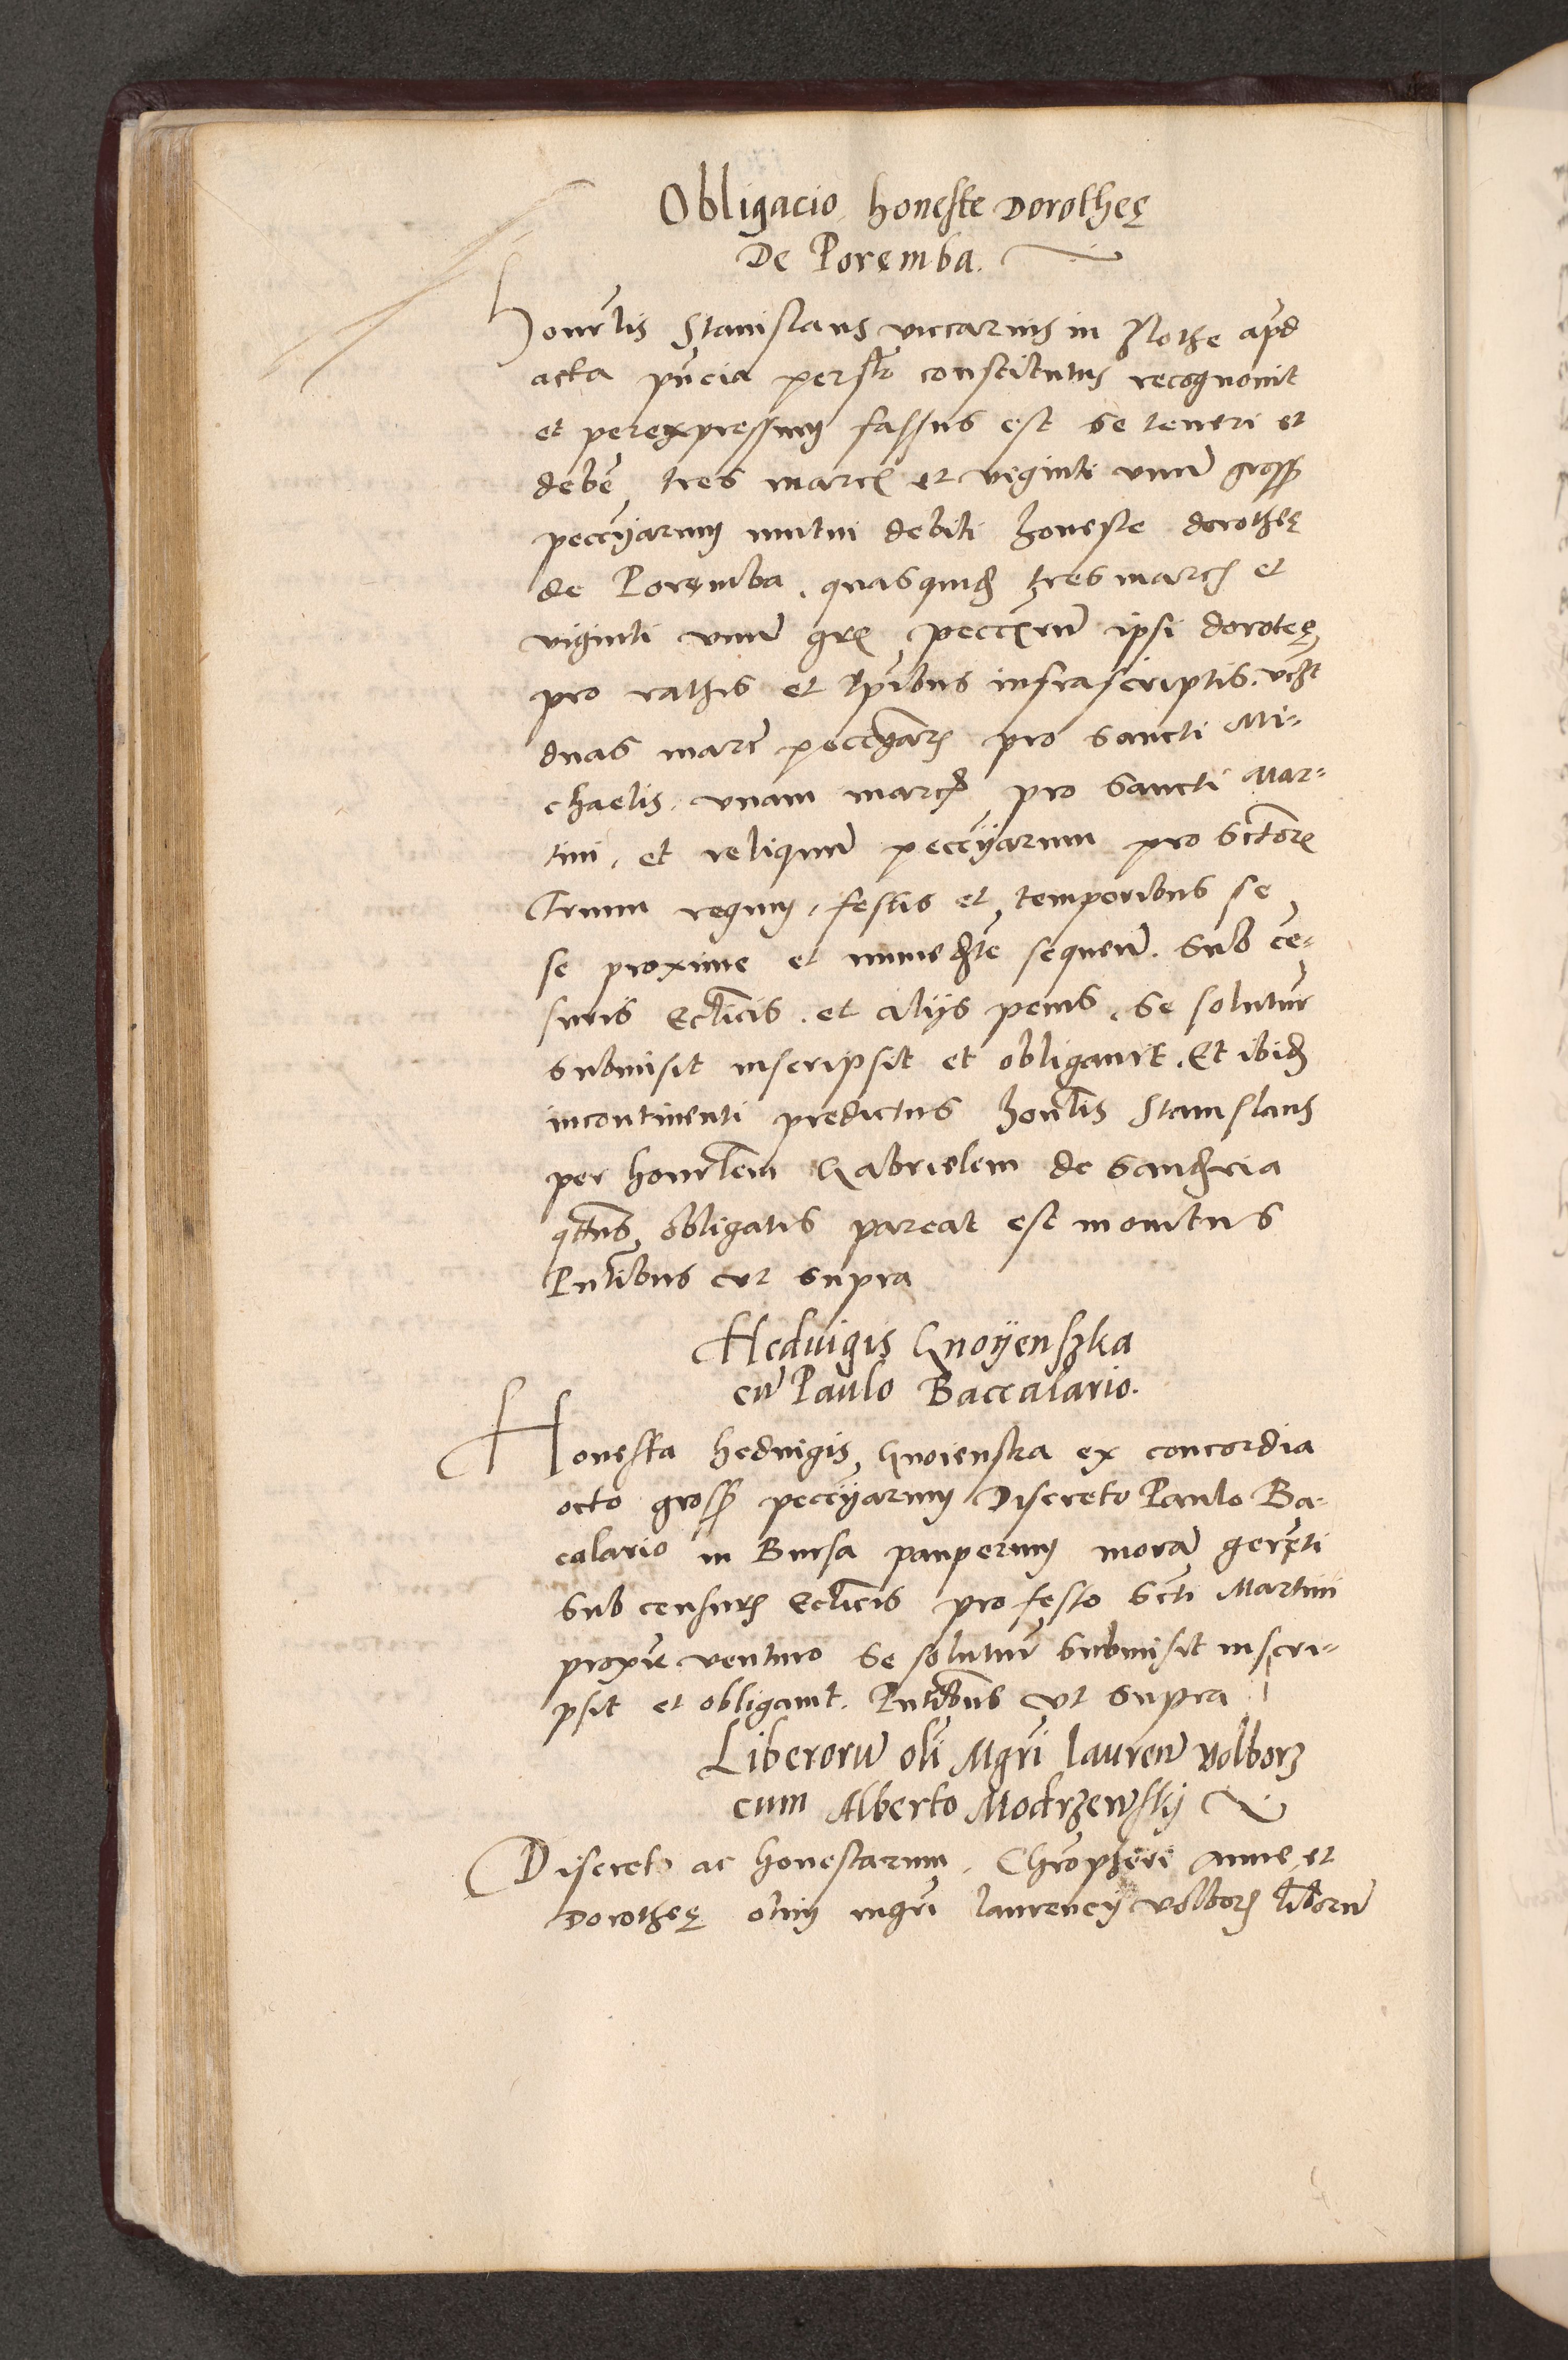 Obligacio honeste Dorotheę
De Poremba.
Honrlis Stanislaus viccarius in Zlothe apd
acta pñcia persolr constitutus recognouit
et per expressum fassus est se teneri et
debẽ tres marcs et viginti vnũ gross
peccũiarum mutui debiti honeste dorotheę
de Poremba. quasquid tres marcs et
viginti vnũ grs peccũarũ ipsi doroteę
pro rathis et tpribus infrascriptis. vczlt
duas marc peccũiars pro sancti Mi-
chaelis. vnam marcã pro sancti Mar-
tini. et reliquũ peccũiarum pro sctors
Trium regum, festis et temporibus se
se proxime et immedte sequeñ. Sub cẽ-
suris Ecclicis. et alijs penis, se soluturũ
submisit inscripsit et obligauit. Et ibid
incontinenti predictus honrlis Stanislaus
per honrlem Gabrielem de Sandecia
qtenus obligatis pareat est monitus
Pntibus vt supra
Hedvigis Gnoyenszka
cũ Paulo Baccalario.
Honesta hedvigis Gnoienska ex concordia
octo gross peccũiarum Discreto Paulo Ba-
calario in Bursa pauperum morã gerẽti
sub censurs Ecclicis pro festo Scti Martini
proxie venturo se soluturũ submisit inscri-
psit et obligauit. Pntibus vt supra
Liberorũ oli Mgri laureñ volborz
cum Alberto Modrzewsky
Discreto ac honestarum. Chrõpheri Anne et
Dorotheę olim mgri laurencij volbors libororũ